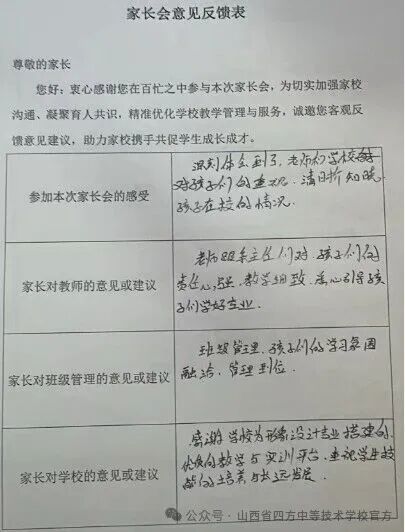 家长会意见反馈表
尊敬的家长
您好：衷心感谢您在百忙之中参与本次家长会，为切实加强家校
沟通、凝聚育人共识，精准优化学校教学管理与服务，诚邀您客观反
馈意见建议，助力家校携手共促学生成长成才。
参加本次家长会的感受
深刻体会到了，老师们学校
对孩子们的重视。清晰知晓
孩子在校的情况。
家长对教师的意见或建议
老师跟系主任们对 孩子们的
责任心强，教学细致。尽心引导孩
子们学好专业。
家长对班级管理的意见或建议
班级管理、孩子们的学习氛围
融洽，管理到位。
家长对学校的意见或建议
感谢学校为形象设计专业搭建的
优质的教学与实训平台，重视学生技
能的培养与长远发展
公众号·山西省四方中等技术学校官方